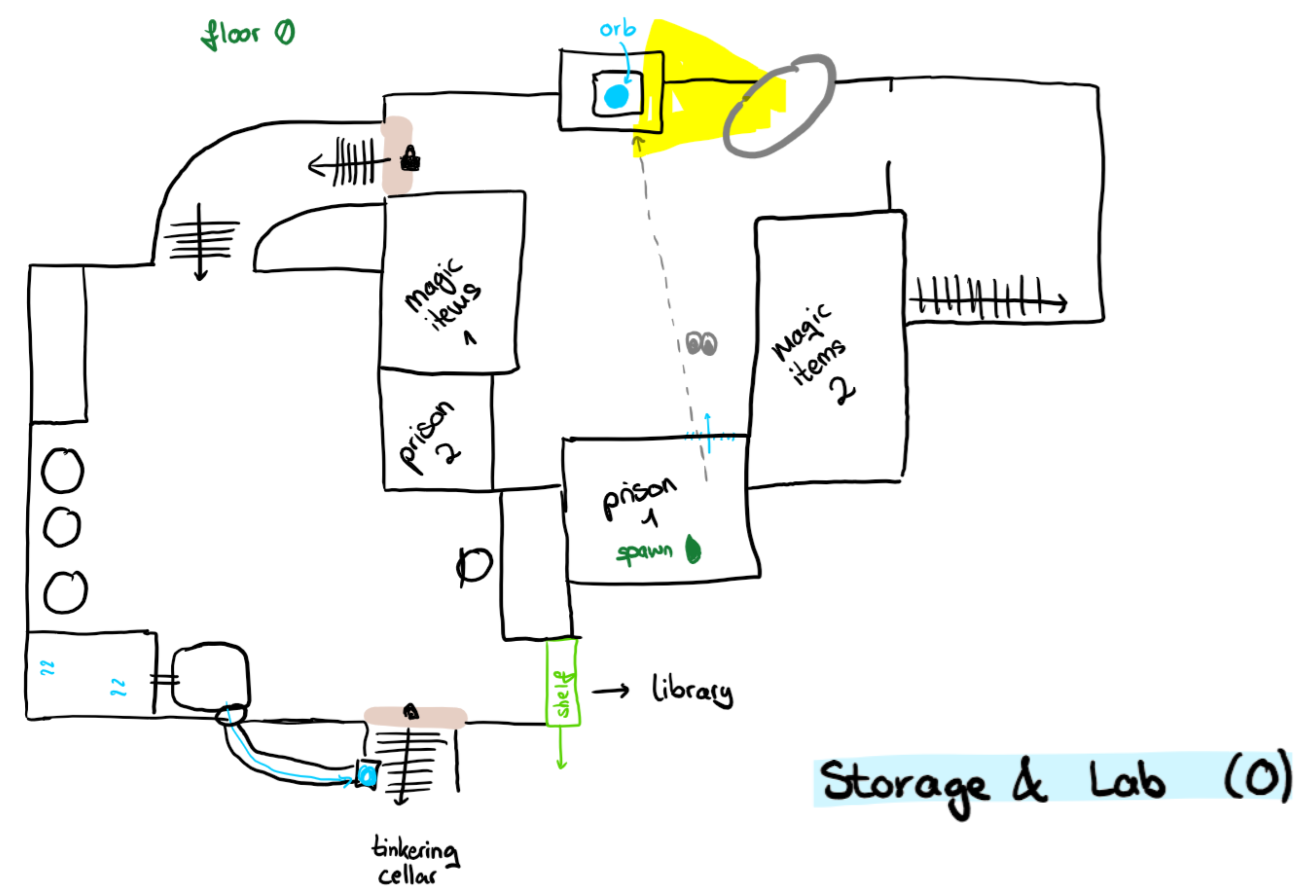 floor 0
orb
magic
items
1
Magic
items
2
prison
2
prison
1
spawn
shelf
library
tinkering
cellar
Storage & Lab (0)